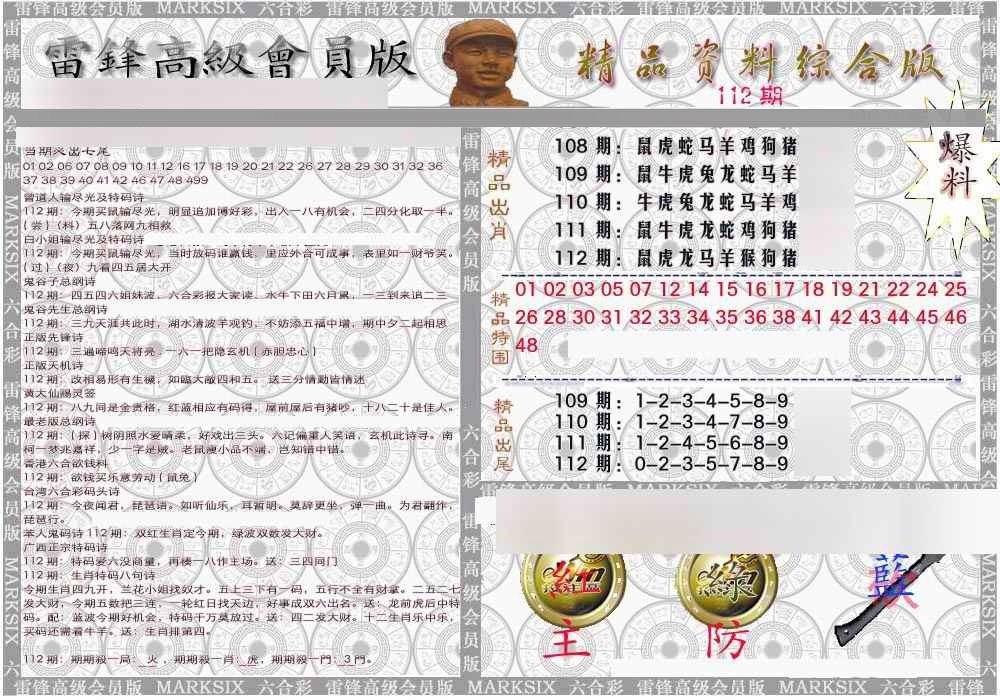 雷锋高级会员版 MARKSIX 六合彩 雷锋高级会员版 MARKSIX 六合彩 雷锋高级会员版 MARKSIX 六合彩 雷锋
雷鋒高級會員版
精品资料综合版
112 期
爆料
01 02 06 07 08 09 10 11 12 16 17 18 19 20 21 22 26 27 28 29 30 31 32 36
37 38 39 40 41 42 46 47 48 499
曾道人输尽光及特码诗
112 期：今期买鼠输尽光，明显追加博好彩，出入一八有机会，二四分化取一半。
{ 尝 }（料）五八落网九相救
白小姐输尽光及特码诗
112 期：今期买鼠输尽光，当时放码谁赢钱，里应外合可成事，表里如一财爷笑。
{ 过 }（夜）九看四五居大开
鬼谷子总纲诗
112 期：四五四六姐妹波，六合彩报大家读，水牛下田六月累，一三到来追二三
鬼谷先生总纲诗
112 期：三九天涯共此时，湖水清波羊观钓，不妨添五福中增，期中夕二起相思
正版先锋诗
112 期：三遍啼鸣天将亮，一六一把隐玄机 { 赤胆忠心 }
正版天机诗
112 期：改相易形有生機，如臨大敵四和五。 送三分情勤皆情迷
黄大仙赐灵签
112 期：八九间是金贵格，红蓝相应有码得，屋前屋后有猪吵，十八二十是佳人。
最老版总纲诗
112 期：{ 探 } 树阴照水爱晴柔，好戏出三头。六记偏重人笑语，玄机此诗寻。南
柯一梦兆嘉祥，少一字是贼。老鼠瘦小品不端，岂知错中错。
香港六合欲钱料
112 期：欲钱买乐意劳动 { 鼠兔 }
台湾六合彩码头诗
112 期：今夜闻君，琵琶语。如听仙乐，耳暂明。莫辞更坐，弹一曲。为君翻作，
琵琶行。
苯人鬼码诗 112 期：双红生肖定今期，绿波双数发大财。
广西正宗特码诗
112 期：特码爱六没商量，再楼一八作主场。送：三四同门
112 期：生肖特码八句诗
今期生肖四九开，兰花小姐找奴才。五上三下有一码，五行不全有财拿。二五二七
发大财，今期五数把三连，一轮红日找天边，好事成双六出名。送：龙前虎后中特
码。配：蓝波今期好机会，特码千万莫放过。送：四二发大财。十二生肖乐中乐，
买码还需看牛羊。送：生肖排第四。
112 期：期期殺一局：火，期期殺一肖：虎，期期殺一門：3 門。
精品出肖
108 期：鼠虎蛇马羊鸡狗猪
109 期：鼠牛虎兔龙蛇马羊
110 期：牛虎兔龙蛇马羊鸡
111 期：鼠牛虎龙蛇鸡狗猪
112 期：鼠虎龙马羊猴狗猪
精品特围
01 02 03 05 07 12 14 15 16 17 18 19 21 22 24 25
26 28 30 31 32 33 34 35 36 38 41 42 43 44 45 46
48
精品出尾
109 期：1-2-3-4-5-8-9
110 期：1-2-3-4-7-8-9
111 期：1-2-4-5-6-8-9
112 期：0-2-3-5-7-8-9
紅 綠 藍
主 防
雷锋高级会员版 MARKSIX 六合彩 雷锋高级会员版 MARKSIX 六合彩 雷锋高级会员版 MARKSIX 六合彩 雷锋